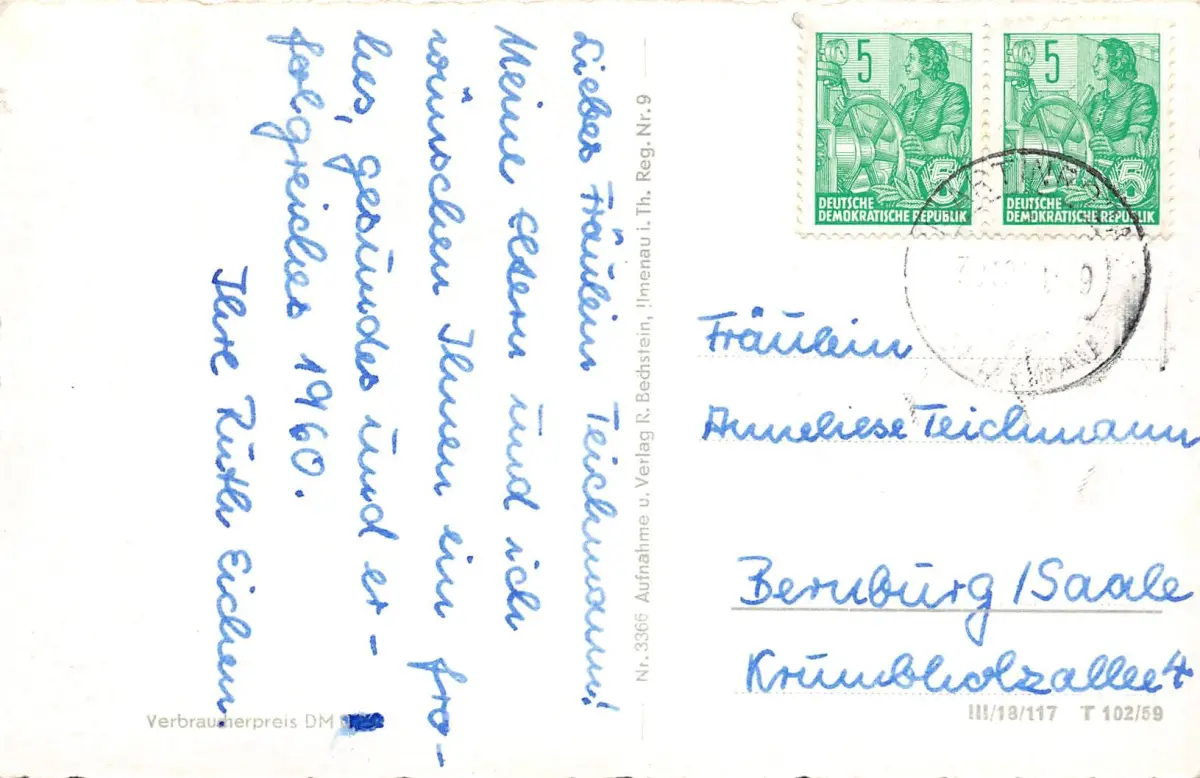 Liebes Fräulein Teichmann!
Meine Eltern und ich
wünschen Ihnen ein fro-
hes, gesundes und er-
folgreiches 1960.
Ihre Ruth Eichen.
Verbraucherpreis DM
Nr. 3366 Aufnahme u. Verlag R. Bechstein, Ilmenau i. Th. Reg. Nr. 9
5
5
5
5
DEUTSCHE
DEMOKRATISCHE REPUBLIK
DEUTSCHE
DEMOKRATISCHE REPUBLIK
Fräulein
Anneliese Teichmann
Bernburg /Saale
Krumbholzallee 4
III/18/117 T 102/59